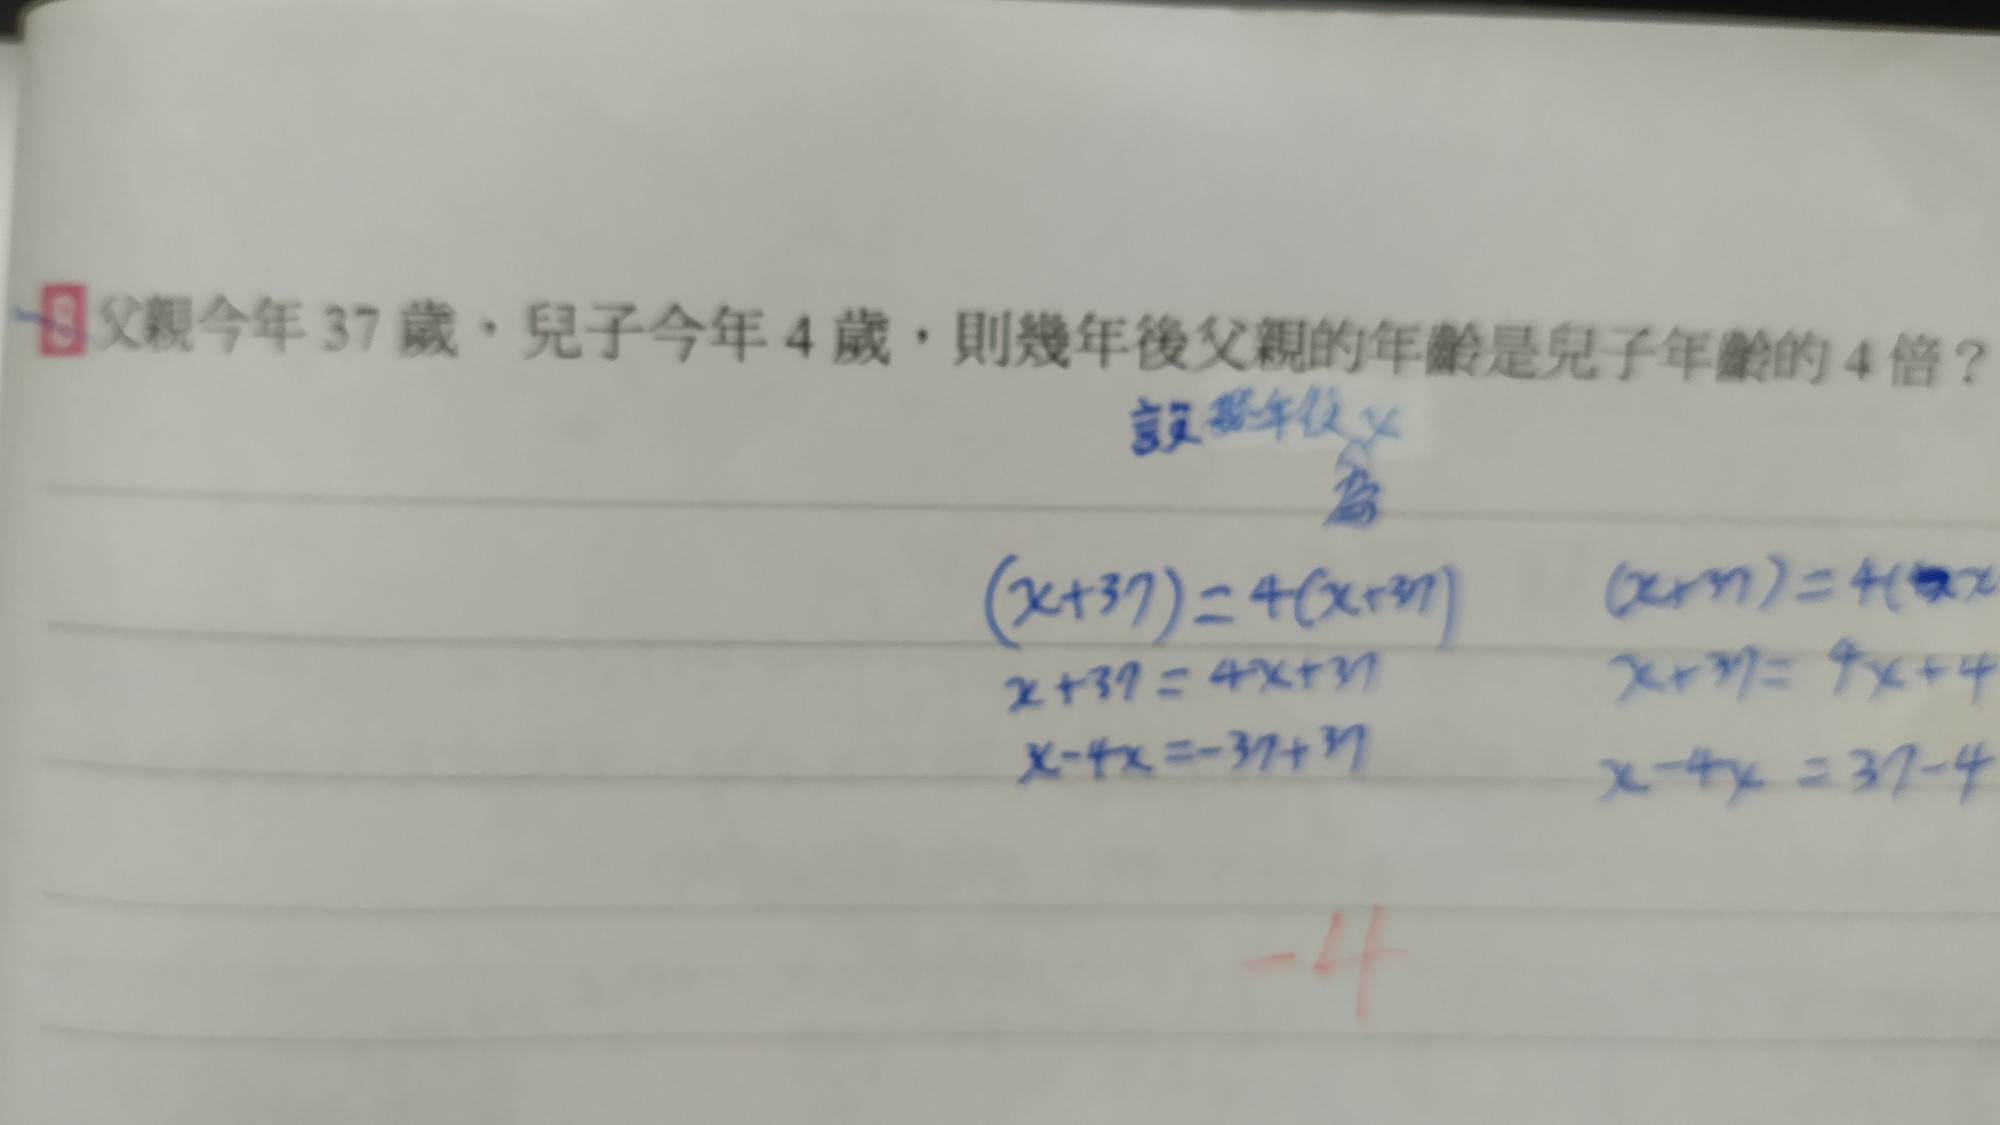 8 父親今年 37 歲，兒子今年 4 歲，則幾年後父親的年齡是兒子年齡的 4 倍？
設 年後 x
為
(x+37)=4(x+37)
x+37=4x+37
x-4x=-37+37
(x+37)=4(x
x+37=4x+4
x-4x=37-4
-4